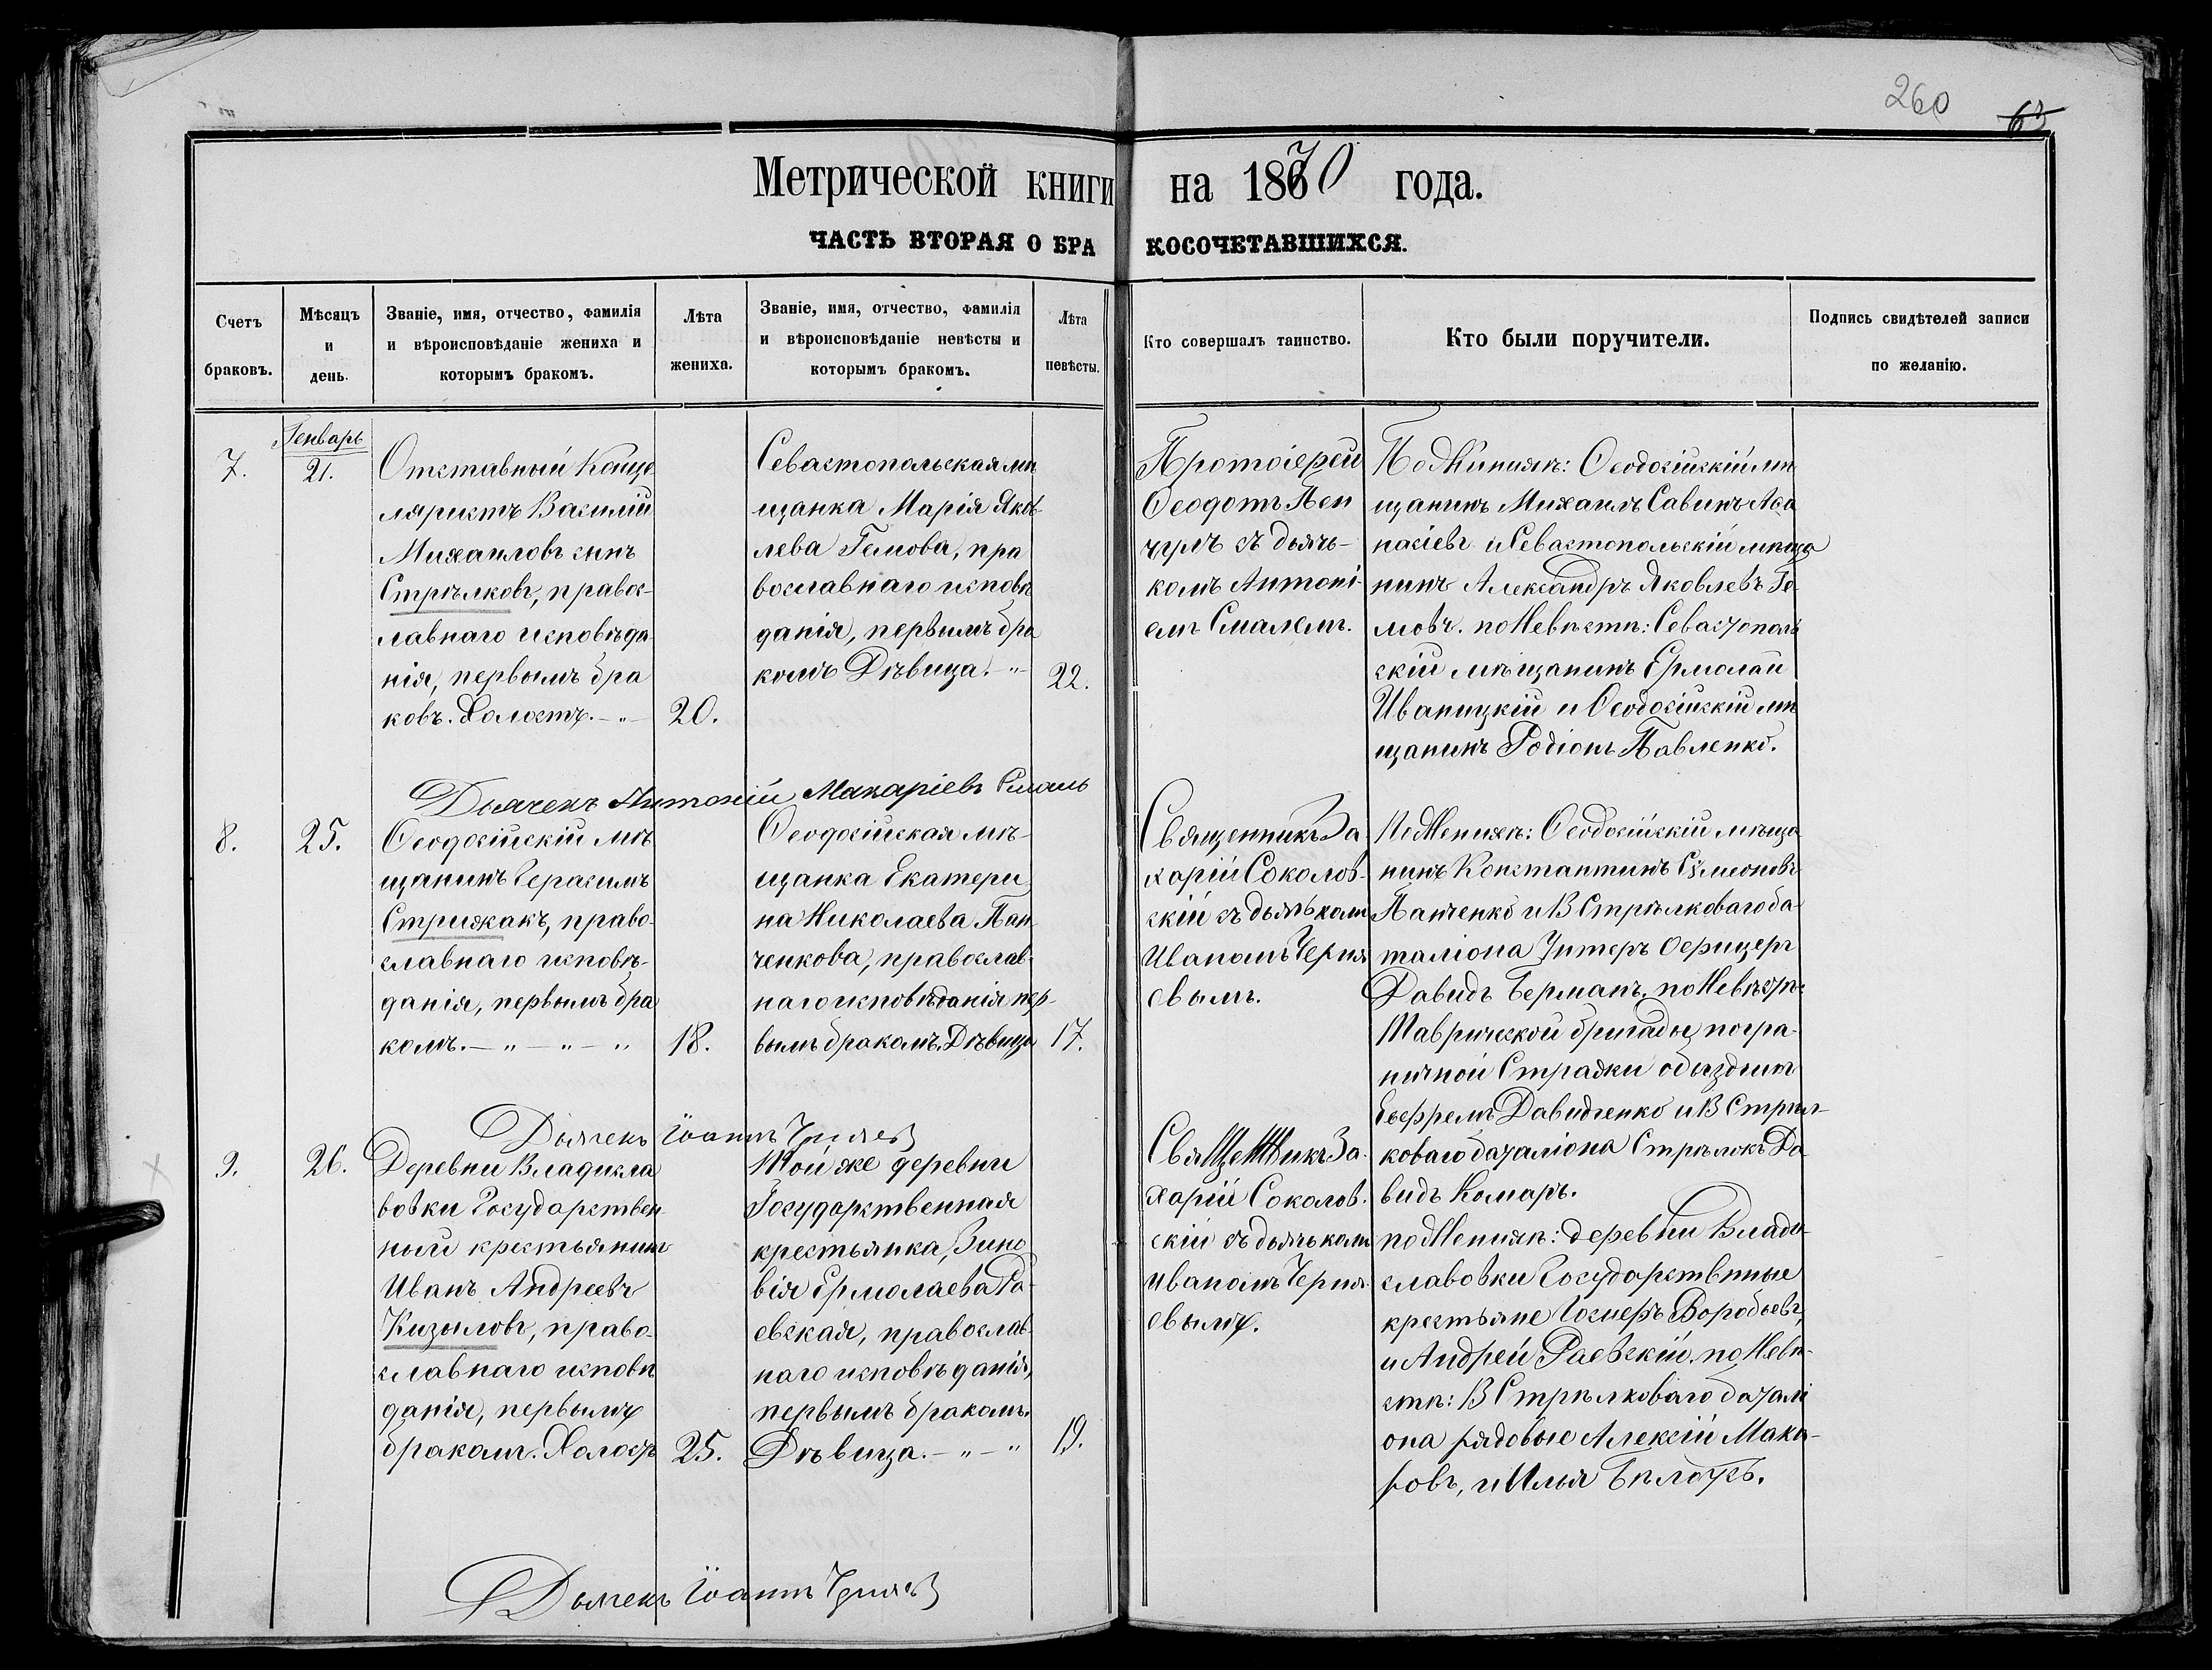 260
63
Метрической книги на 1870 года.
ЧАСТЬ ВТОРАЯ О БРАКОСОЧЕТАВШИХСЯ.
Счетъ браковъ.
Мѣсяцъ и день.
Званіе, имя, отчество, фамилія и вѣроисповѣданіе жениха и которымъ бракомъ.
Лѣта жениха.
Званіе, имя, отчество, фамилія и вѣроисповѣданіе невѣсты и которымъ бракомъ.
Лѣта невѣсты.
Кто совершалъ таинство.
Кто были поручители.
Подпись свидѣтелей записи по желанію.
7.
Генварь
21.
Отставный Канце
ляристъ Василій
Михаиловъ сынъ
Стрѣлковъ, правос-
лавнаго исповѣда
нія, первымъ бра
ковъ. Холостъ. — „ —
20.
Севастопольская мѣ
щанка Марія Яков-
лева Гемова, пра
вославнаго исповѣ
данія, первымъ бра
комъ Дѣвица. — „ —
22.
Протоіерей
Ѳеодотъ Пен
чулъ съ дьячь-
комъ Антоні-
емъ Смалемъ.
По Женихѣ: Ѳеодосійскій мѣ
щанинъ Михаилъ Савинъ Аѳа
насіевъ и Севастопольскій мѣща
нинъ Александръ Яковлевъ Ге-
мовъ. по Невѣстѣ: Севастополь
скій мѣщанинъ Ермолай
Иваницкій и Ѳеодосійскій мѣ
щанинъ Родіонъ Павленко.
Дьячекъ Антоній Макаріевъ Смаль
8.
25.
Ѳеодосійскій мѣ
щанинъ Герасимъ
Стрижакъ, право-
славнаго исповѣ-
данія, первымъ бра
комъ. — „ — „ — „
18.
Ѳеодосійская мѣ-
щанка Екатери
на Николаева Пан
ченкова, православ-
наго исповѣданія пер-
вымъ бракомъ. Дѣвица
17.
Священникъ За
харій Соколов-
скій съ дьячькомъ
Иваномъ Черня
евымъ.
По Женихѣ: Ѳеодосійскій мѣща
нинъ Константинъ Сѵмеоновъ
Панченко и В Стрѣлковаго ба
таліона Унтеръ Офицеръ
Давидъ Берманъ. по Невѣстѣ:
Таврической бригады погра-
ничной Стражи объѣздчикъ
Давидченко и В Стрѣл-
коваго баталіона Стрѣлокъ Да
видъ Комаръ.
Дьячекъ Іоаннъ Черняев
9.
26.
Деревни Владисла
вовки Государствен
ный крестьянинъ
Иванъ Андреевъ
Кизыловъ, право-
славнаго исповѣ
данія, первымъ
бракомъ. Холостъ
25.
Той же деревни
Государственная
крестьянка, Зино
вія Ермолаева Ра-
евская, православ-
наго исповѣданія,
первымъ бракомъ.
Дѣвица. — „ — „
19.
Священникъ За-
харій Соколов-
скій съ дьячькомъ
Иваномъ Черня-
евымъ.
по Женихѣ: деревни Влади-
славовки Государствнные
крестьяне Іосифъ Воробьевъ,
и Андрей Раевскій. по Невѣ-
стѣ: В Стрѣлковаго баталі
она рядовые Алексій Мака-
ровъ, и Илья Бѣлоусъ.
Дьячекъ Іоаннъ Черняев